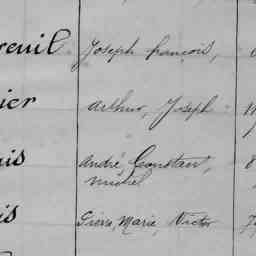 reuil Joseph françois,
ier Arthur, Joseph
uis André, Constant,
michel
is Pierre, Marie, Victor